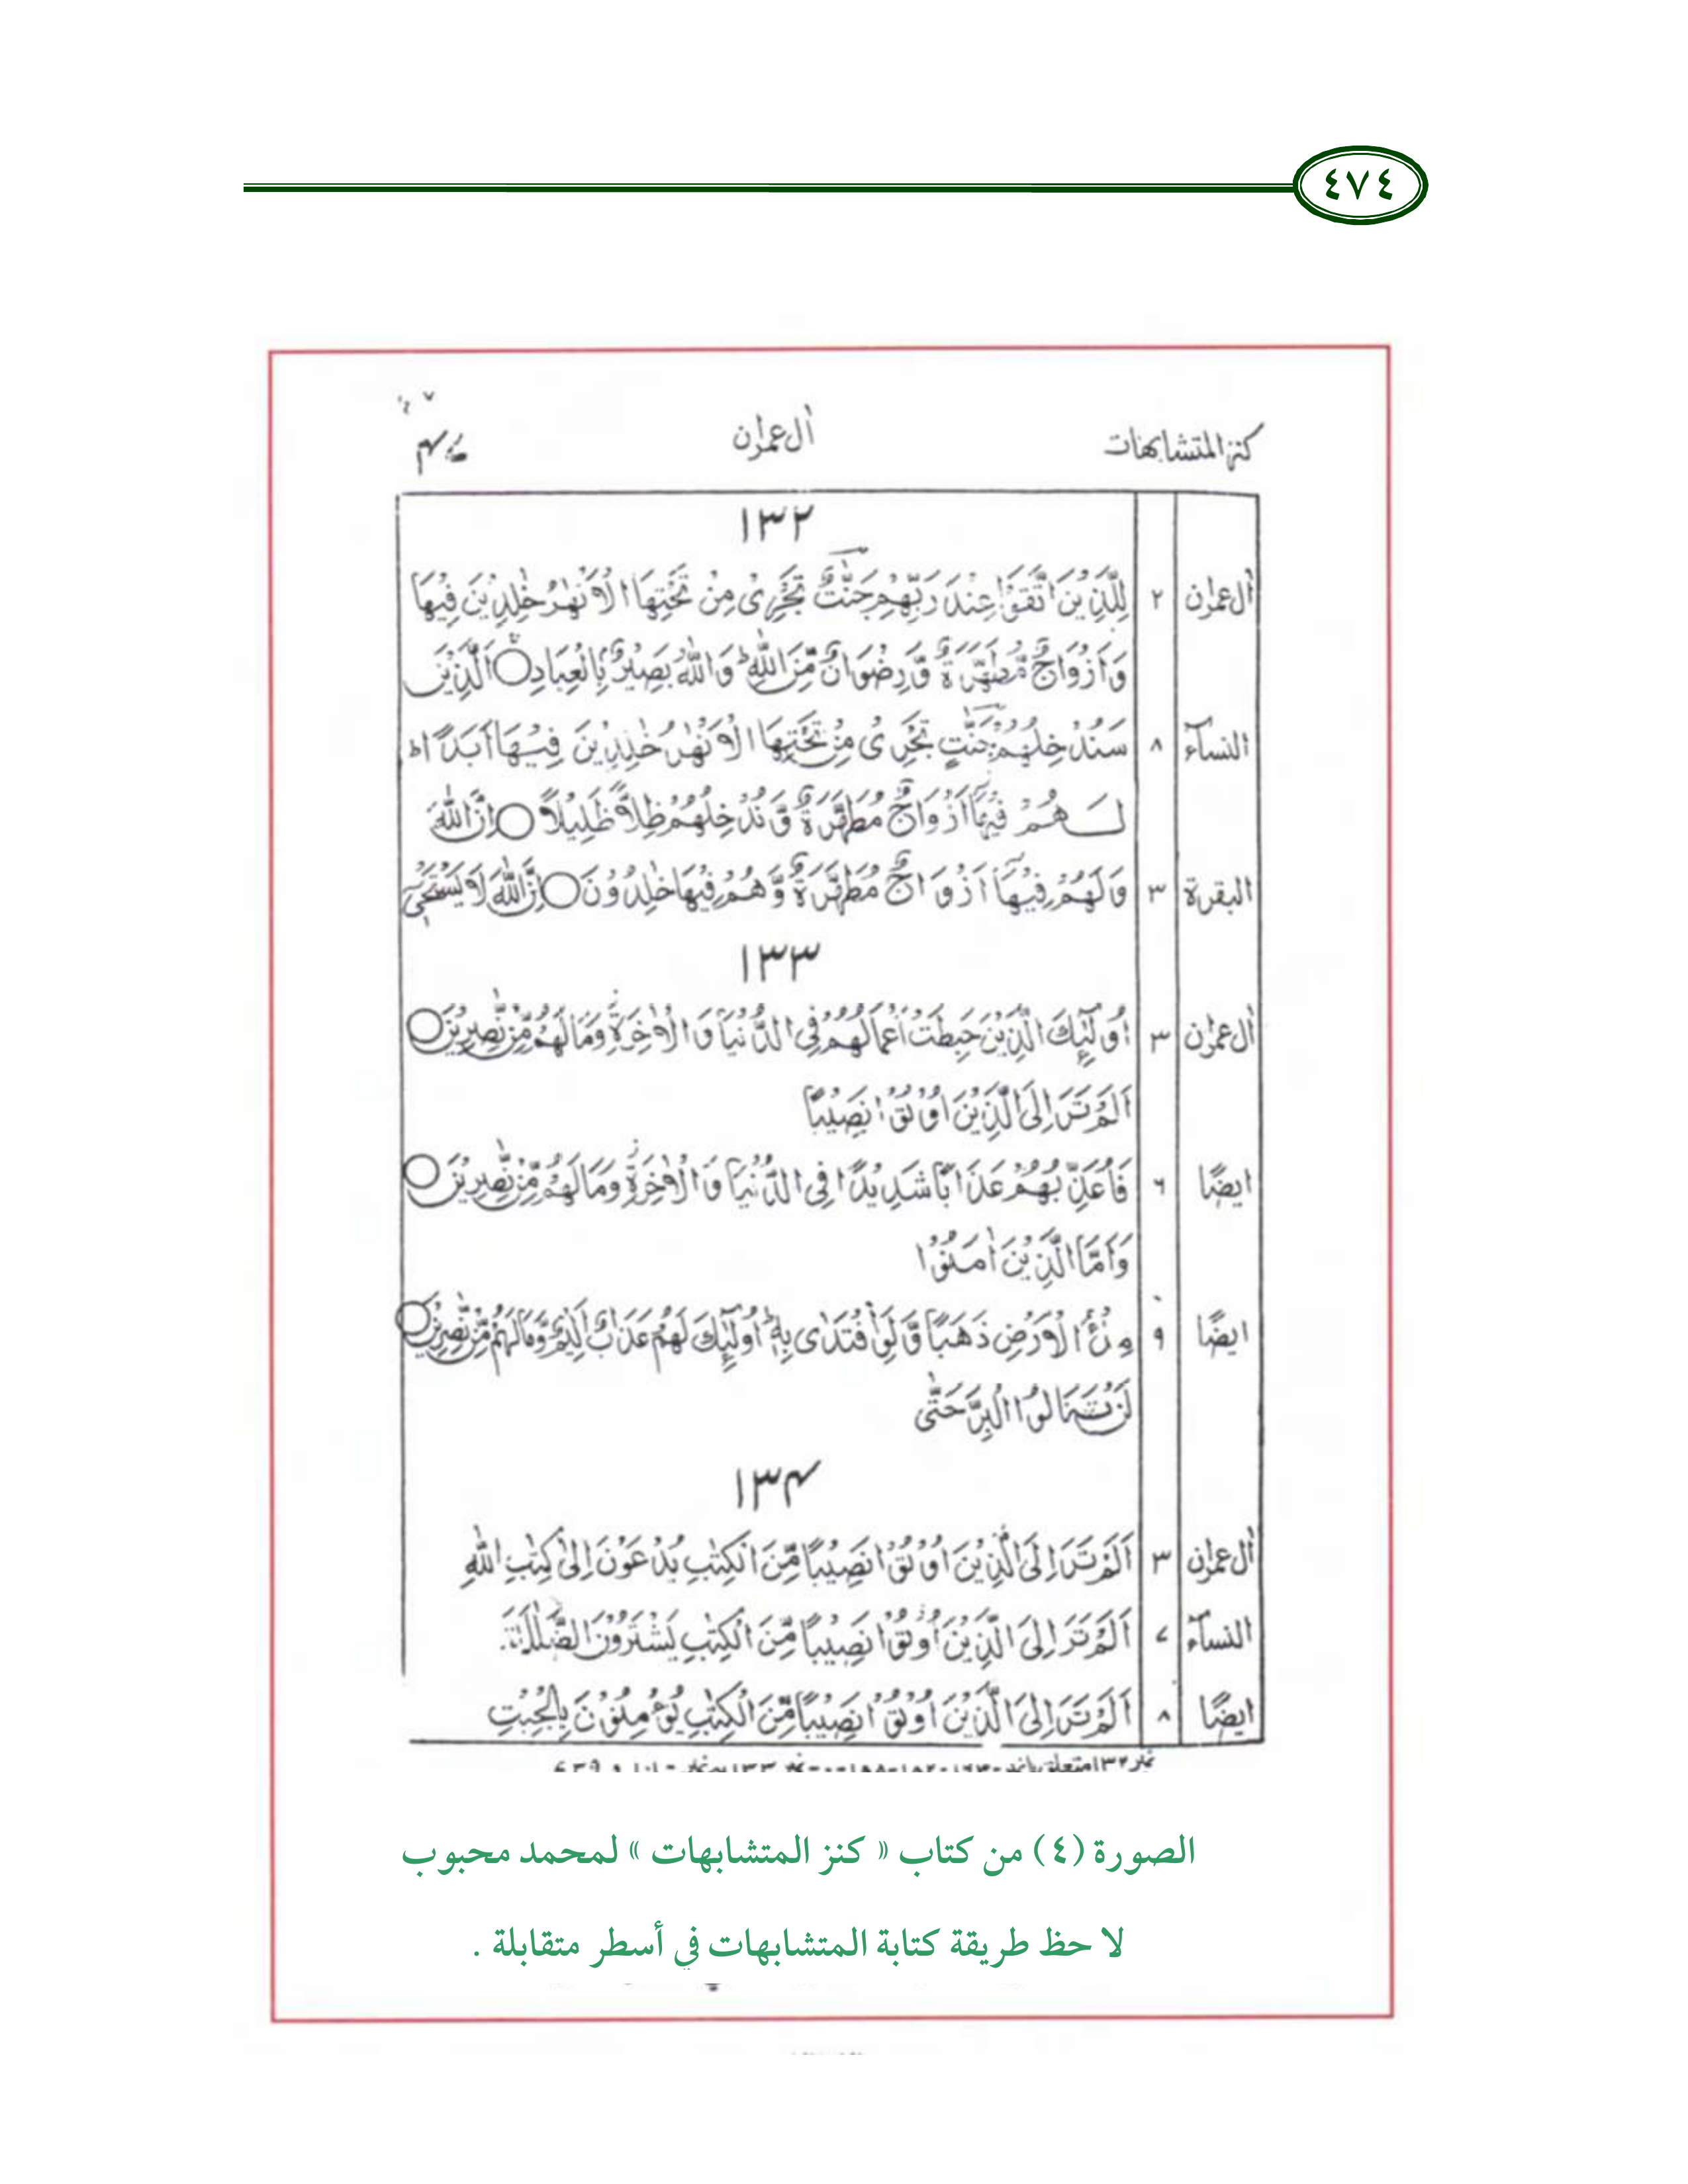 ٤٧٤
كنز المتشابهات اٰل عمرٰن
۱۳۲
اٰل عمرٰن ۲ لِلَّذِيْنَ اتَّقَوْا عِنْدَ رَبِّهِمْ جَنّٰتٌ تَجْرِيْ مِنْ تَحْتِهَا الْاَنْهٰرُ خٰلِدِيْنَ فِيْهَا
وَاَزْوَاجٌ مُّطَهَّرَةٌ وَّرِضْوَانٌ مِّنَ اللّٰهِ ؕ وَاللّٰهُ بَصِيْرٌۢ بِالْعِبَادِ ○ اَلَّذِيْنَ
النسآء ۸ سَنُدْخِلُهُمْ جَنّٰتٍ تَجْرِيْ مِنْ تَحْتِهَا الْاَنْهٰرُ خٰلِدِيْنَ فِيْهَا اَبَدًا ؕ
لَهُمْ فِيْهَا اَزْوَاجٌ مُّطَهَّرَةٌ وَّنُدْخِلُهُمْ ظِلًّا ظَلِيْلًا ○ اِنَّ اللّٰهَ
البقرة ۳ وَلَهُمْ فِيْهَا اَزْوَاجٌ مُّطَهَّرَةٌ وَّهُمْ فِيْهَا خٰلِدُوْنَ ○ اِنَّ اللّٰهَ لَا يَسْتَحْيٖ
۱۳۳
اٰل عمرٰن ۳ اُولٰٓئِكَ الَّذِيْنَ حَبِطَتْ اَعْمَالُهُمْ فِي الدُّنْيَا وَالْاٰخِرَةِ وَمَا لَهُمْ مِّنْ نّٰصِرِيْنَ ○
اَلَمْ تَرَ اِلَى الَّذِيْنَ اُوْتُوْا نَصِيْبًا
ايضًا ٦ فَاُعَذِّبُهُمْ عَذَابًا شَدِيْدًا فِي الدُّنْيَا وَالْاٰخِرَةِ وَمَا لَهُمْ مِّنْ نّٰصِرِيْنَ ○
وَاَمَّا الَّذِيْنَ اٰمَنُوْا
ايضًا ۹ مِلْءُ الْاَرْضِ ذَهَبًا وَّلَوِ افْتَدٰى بِهٖ ؕ اُولٰٓئِكَ لَهُمْ عَذَابٌ اَلِيْمٌ وَّمَا لَهُمْ مِّنْ نّٰصِرِيْنَ ○
لَنْ تَنَالُوا الْبِرَّ حَتّٰى
۱۳۴
اٰل عمرٰن ۳ اَلَمْ تَرَ اِلَى الَّذِيْنَ اُوْتُوْا نَصِيْبًا مِّنَ الْكِتٰبِ يُدْعَوْنَ اِلٰى كِتٰبِ اللّٰهِ
النسآء ۷ اَلَمْ تَرَ اِلَى الَّذِيْنَ اُوْتُوْا نَصِيْبًا مِّنَ الْكِتٰبِ يَشْتَرُوْنَ الضَّلٰلَةَ
ايضًا ۸ اَلَمْ تَرَ اِلَى الَّذِيْنَ اُوْتُوْا نَصِيْبًا مِّنَ الْكِتٰبِ يُؤْمِنُوْنَ بِالْجِبْتِ
الصورة (٤) من كتاب « كنز المتشابهات » لمحمد محبوب
لا حظ طريقة كتابة المتشابهات في أسطر متقابلة .